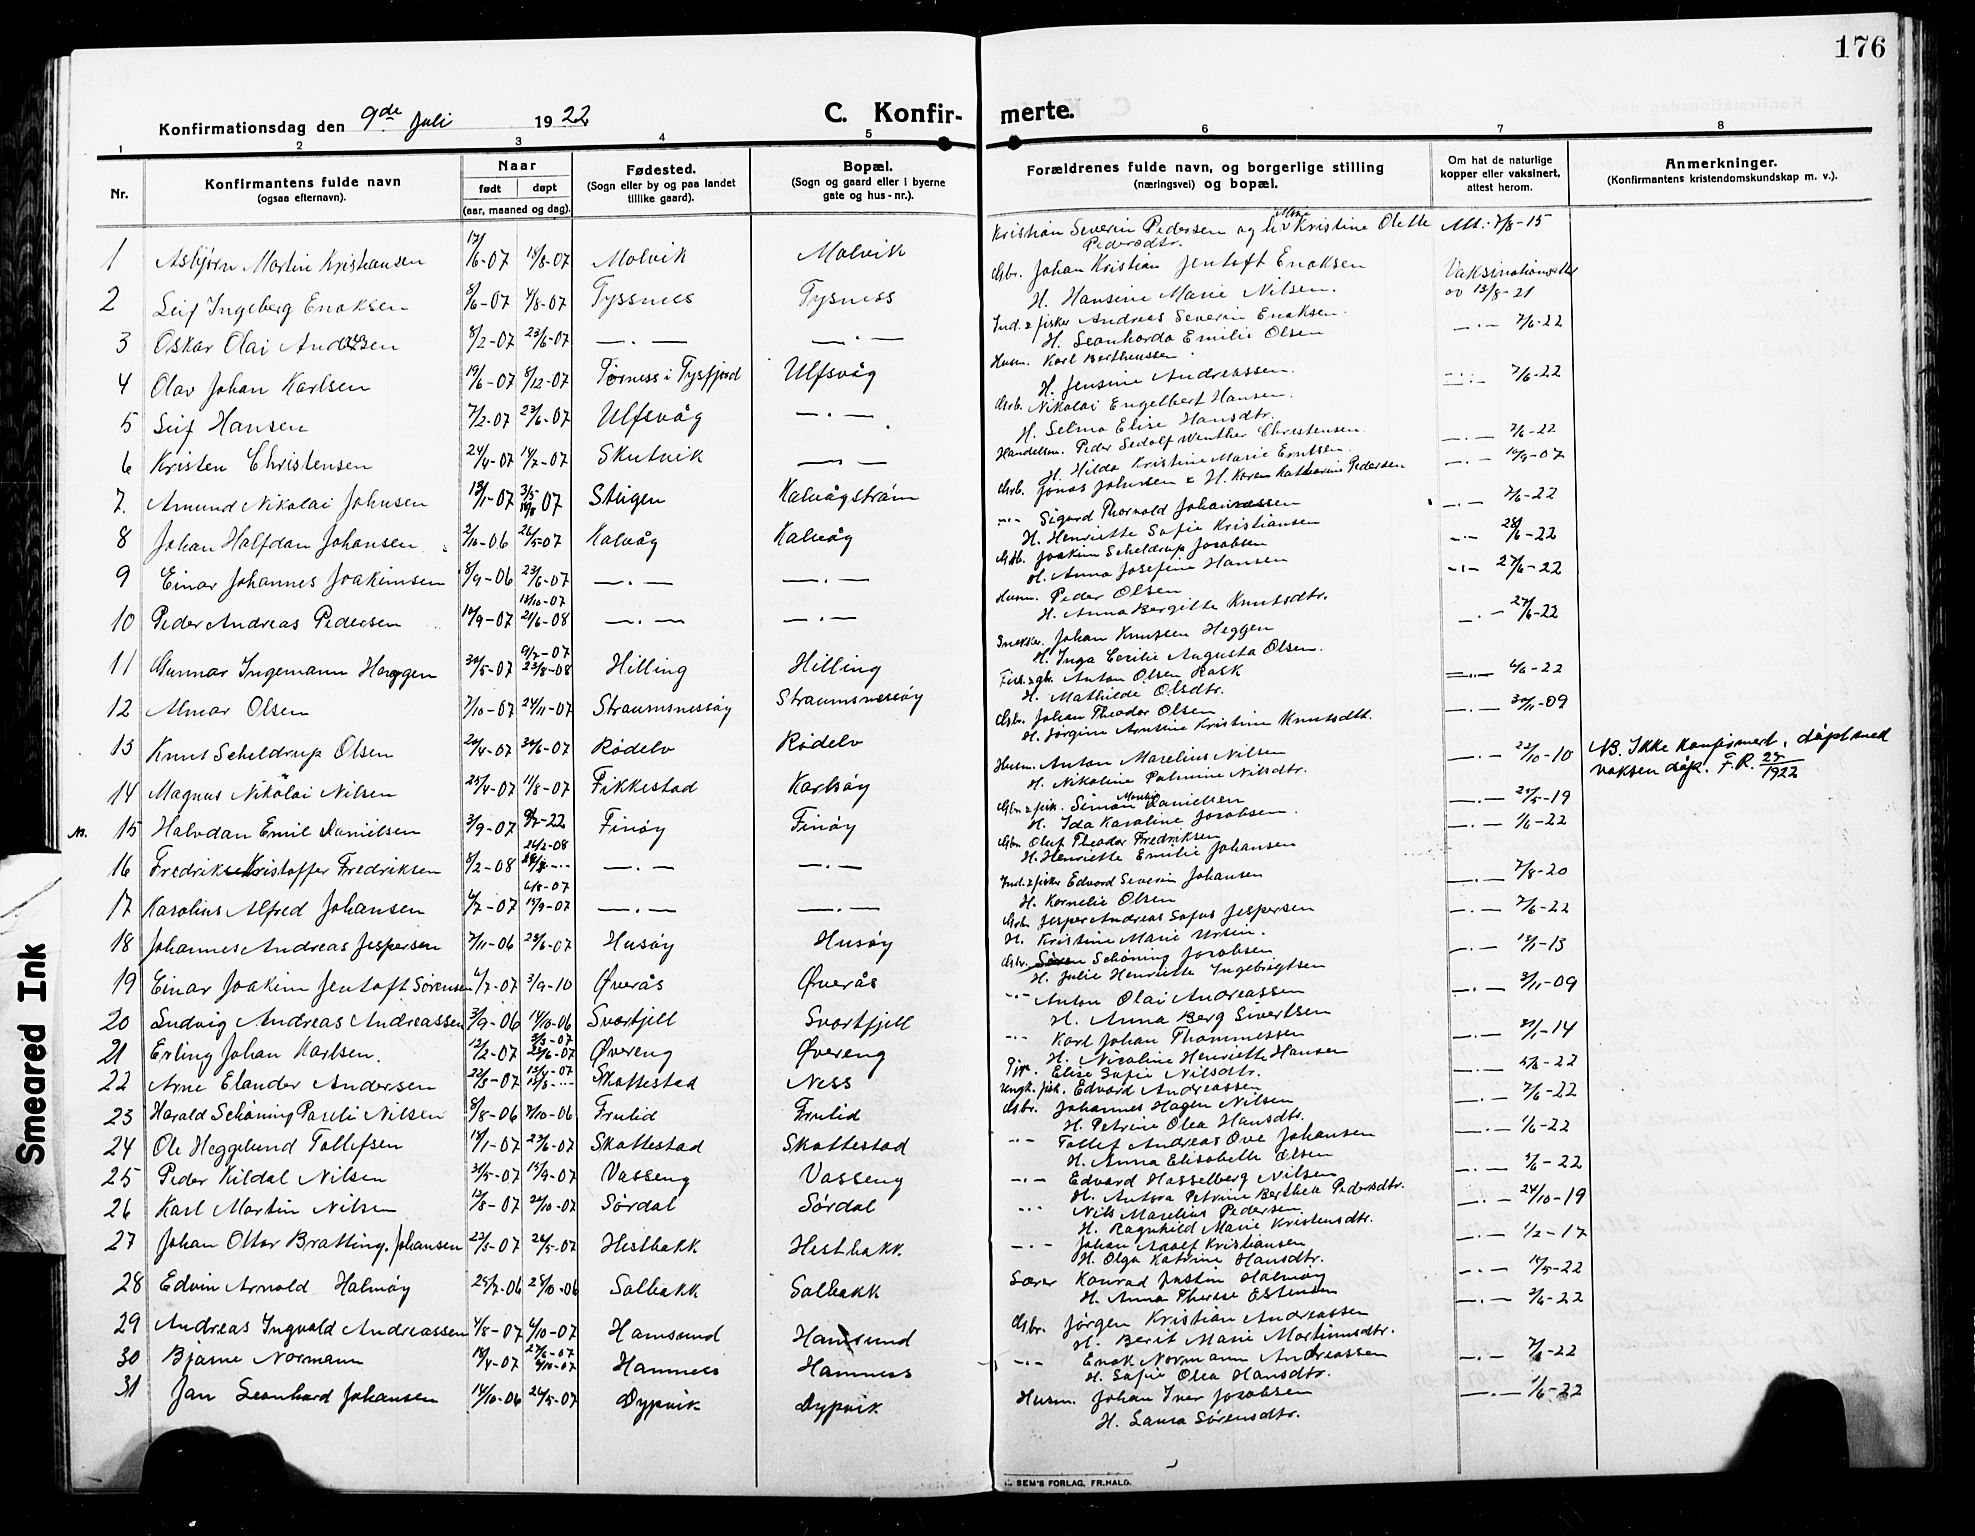 176
Konfirmationsdag den 9de Juli 1922 C. Konfirmerte.
1 2 3 4 5 6 7 8
Nr. Konfirmantens fulde navn (ogsaa efternavn). Naar født døpt (aar, maaned og dag). Fødested. (Sogn eller by og paa landet tillike gaard). Bopæl. (Sogn og gaard eller i byerne gate og hus-nr.). Forældrenes fulde navn, og borgerlige stilling (næringsvei) og bopæl. Om hat de naturlige kopper eller vaksinert, attest herom. Anmerkninger. (Konfirmantens kristendomskundskap m. v.).
1 Asbjørn Martin Kristiansen 17/6-07 18/8-07 Molvik Molvik Kristian Severin Pedersen og Kristine Olette Pedersdtr. Att. 7/8-15
2 Leif Ingeberg Enoksen 8/6-07 4/8-07 Tyssnes Tysness Gbr. Johan Kristian Jentoft Enoksen
H. Hansine Marie Nilsen. 13/8-21
3 Oskar Olai Andersen 8/2-07 23/6-07 —.— —.— Ind. & fisker Andreas Severin Enoksen.
H. Leonharda Emilie Olsen —.— 7/6-22
4 Olav Johan Karlsen 19/6-07 8/12-07 Torness i Tysfjord Ulfsvåg Husm. Karl Bertheussen
H. Jensine Andreassen. —.— 7/6-22
5 Leif Hansen 7/2-07 23/6-07 Ulfsvåg —.— Gbr. Nikolai Engelbert Hansen.
H. Selma Elise Hansdtr.
6 Kristen Christensen 24/4-07 14/7-07 Skutvik —.— Handelsm. Peder Sedolf Winther Christensen.
H. Hilda Kristine Marie Erntsen. —.— 7/6-22
7. Amund Nikolai Johnsen 13/1-07 3/5 07 Steigen Kalvågstrøm Gbr. Jonas Johnsen & H. Karen Katharine Pedersen —.— 10/9-07
8 Johan Halfdan Johansen 2/10-06 26/5-07 Kalvåg Kalvåg —"— Sigurd Thorvald Johannessen
H. Henriette Sofie Kristiansen —.— 7/6-22
9 Einar Johannes Joakimsen 8/9-06 23/6-07 —.— —.— Gbr. Joakim Scheldrup Jacobsen
H. Anna Josefine Hansen —.— 28/6-22
10 Peder Andreas Pedersen 10/9-07 13/10-07 21/6-08 —.— —.— Husm. Peder Olsen
H. Anna Bergitte Knutsdtr. —.— 27/6-22
11 Gunnar Ingemann Heggen 30/5-07 9/7-07 23/8-08 Hilling Hilling Snekker Johan Knutsen Heggen
H. Inga Cecilie Augusta Olsen. —.— 27/6-22
12 Almar Olsen 7/10-07 24/11-07 Straumsnessøy Straumsnessøy Fisk. & gbr. Anton Olsen Rask
H. Mathilde Olsdtr. —.— 6/6-22
13 Knut Scheldrup Olsen 20/4-07 30/6-07 Rødelv Rødelv Gbr. Johan Theodor Olsen
H. Jørgine Arntine Kristine Knutsdtr. —.— 30/11-09
14 Magnus Nikolai Nilsen 25/4-07 11/8-07 Fikkestad Karlsøy Husm. Anton Marelius Nilsen
H. Nikoline Palmine Nilsdtr. —.— 22/10-10 NB. Ikke konfirmert, døpt med
voksen dåp. F.R. 27/1922
N. 15 Halvdan Emil Danielsen 3/9-07 9/7-22 Finøy Finøy Gbr. & fisk. Simon Martin Danielsen
H. Ida Karoline Jacobsen. —.— 29/5-19
16 Fredrik Kristoffer Fredriksen 8/2-08 26/2-08 —.— —.— Gbr. Oluf Theodor Fredriksen
H. Henriette Emilie Johansen —.— 1/6-22
17 Karolius Alfred Johansen 6/7-07 6/8-07 15/9-07 —.— —.— Ind. & fisker Edvard Severin Johansen
H. Kornelie Olsen —.— 7/8-20
18 Johannes Andreas Jespersen 7/11-06 23/6-07 Husøy Husøy Gbr. Jesper Andreas Sofus Jespersen
H. Kristine Marie Ursin. —.— 7/6-22
19 Einar Joakim Jentoft Sørensen 6/7-07 3/9-10 Øverås Øverås Gbr. Søren Schøning Jacobsen
H. Julie Henriette Ingebrigtsen —.— 13/1-13
20 Ludvig Andreas Andreassen 3/9-06 14/10-06 Svartfjell Svortfjell —"— Anton Olai Andreassen
H. Anna Berg Sivertsen —.— 3/11-09
21 Erling Johan Karlsen. 12/2-07 3/3-07 23/6-07 Øvereng Øvereng —"— Karl Johan Thommessen
H. Nicoline Henriette Hansen —.— 31/1-14
22 Arne Elander Andersen 22/3-07 Skottestad Ness Pige. Elise Sofie Nilsdtr.
Ungk. fisk. Edvard Andreassen —.— 4/6-22
23 Harald Schøning Pareli Nilsen 8/8-06 7/10-06 Frulid Frulid Gbr. Johannes Hagen Nilsen
H. Petrine Olea Hansdtr. —.— 7/6-22
24 Ole Heggelund Tollefsen 14/1-07 23/6-07 Skottestad Skottestad —"— Tollef Andreas Ove Johansen
H. Anna Elisabeth Olsen —.— 1/6-22
25 Peder Kildal Nilsen 31/5-07 15/9-07 Vasseng Vasseng —"— Edvard Hasselberg Nilsen
H. Antora Petrine Berthea Pedersdtr. —.— 9/6-22
26 Karl Martin Nilsen 12/8-07 20/10-07 Sørdal Sørdal —"— Nils Marelius Pedersen
H. Ragnhild Marie Kristensdtr. —.— 24/10-19
27 Johan Ottar Bratting Johansen 23/3-07 26/5-07 Hestbakk Hestbakk —"— Johan Adolf Kristiansen
H. Olga Katrine Hansdtr. —.— 1/2-17
28 Edvin Arnold Halmøy 25/7-06 28/10-06 Solbakk Solbakk Lærer Konrad Justin Halmøy
H. Anna Therese Estensen —.— 15/5-22
29 Andreas Ingvald Andreassen 4/8-07 6/10-07 Hamsund Hamsund Gbr. Jørgen Kristian Andreassen
H. Berit Marie Martinusdtr. —.— 3/6-22
30 Bjarne Normann 18/4-07 27/6-07 6/10-07 Hamness Hamness —"— Enok Normann Andreassen
H. Sofie Olea Hansdtr. —.— 7/6-22
31 Jan Leonhard Johansen 14/10-06 26/5-07 Dypvik Dypvik Husm. Johan Iver Jacobsen
H. Laura Sørensdtr. —.— 1/6-22
SEM'S FORLAG, FR.HALD.
Smeared Ink